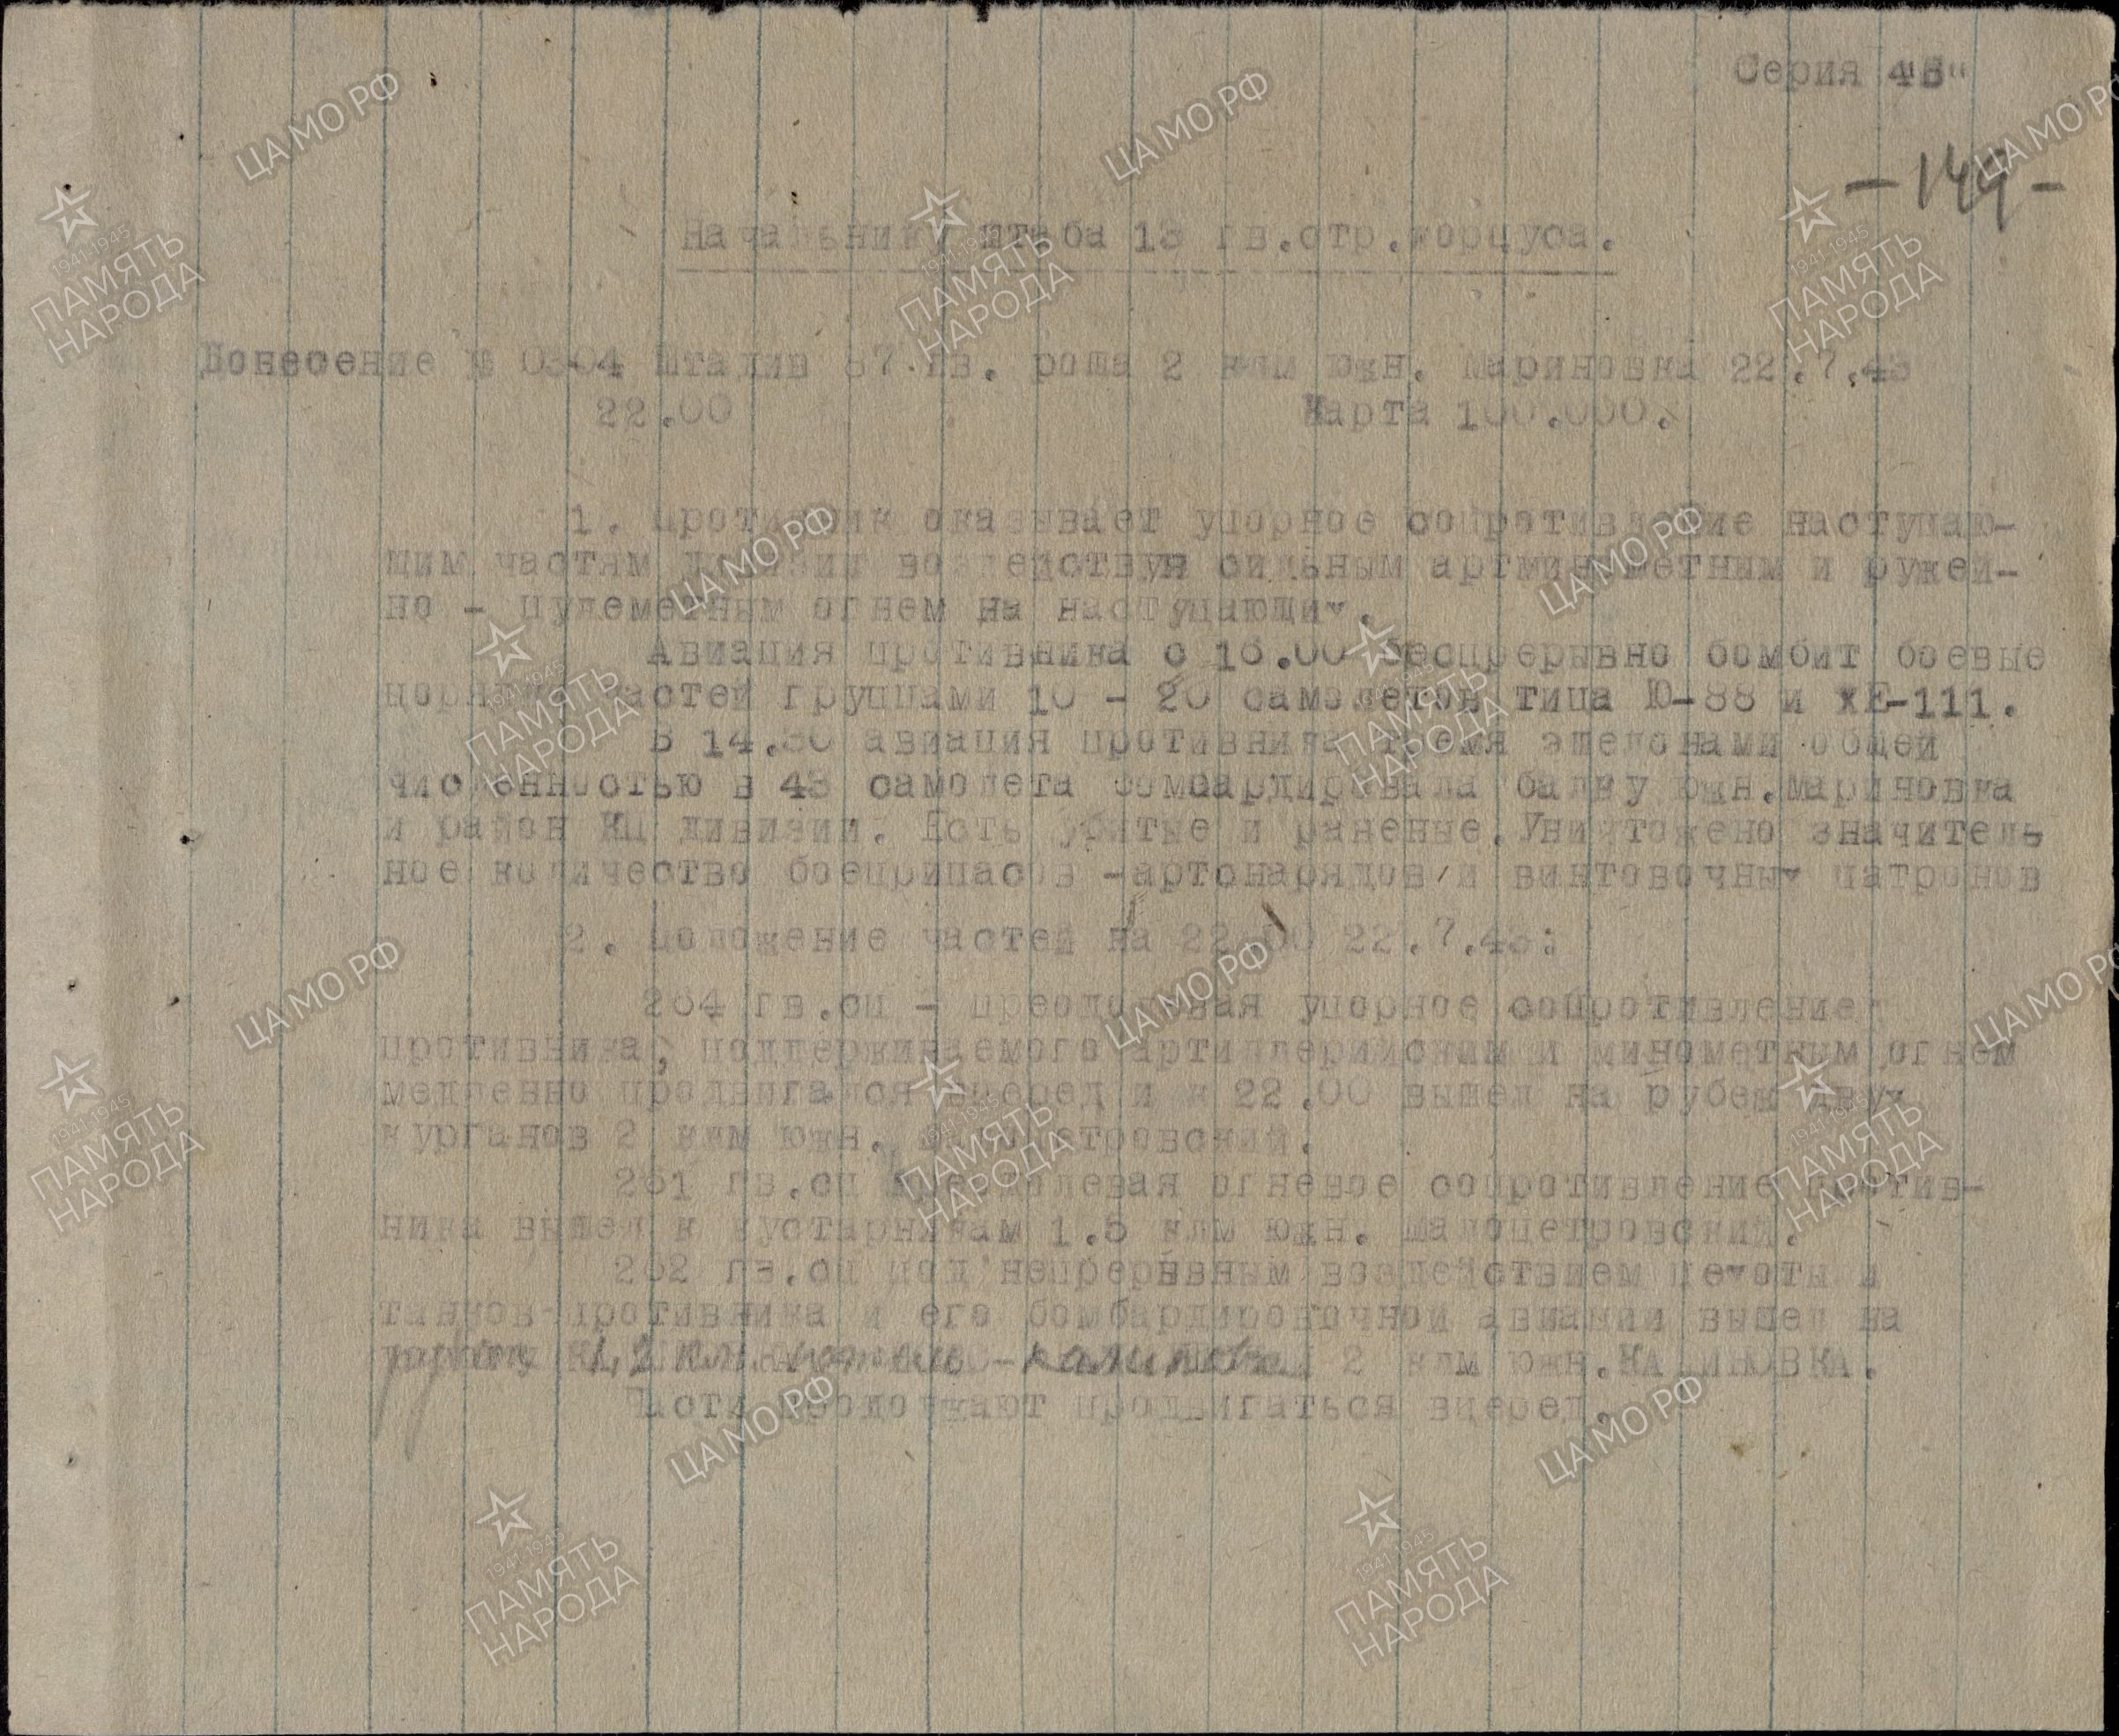 Серия "Б"
-149-
Начальнику штаба 13 гв.стр.корпуса.
Донесение № 0304 Штадив 87 гв. роща 2 клм южн. Мариновка 22.7.43
22.00 Карта 100.000.
1. Противник оказывает упорное сопротивление наступаю-
щим частям дивизии воздействуя сильным артминометным и ружей-
но - пулеметным огнем на наступающих.
Авиация противника с 16.00 беспрерывно бомбит боевые
порядки частей группами 10 - 20 самолетов типа Ю-88 и ХЕ-111.
В 14.30 авиация противника тремя эшелонами общей
численностью в 43 самолета бомбардировала балку южн.Мариновка
и район КП дивизии. Есть убитые и раненые. Уничтожено значитель
ное количество боеприпасов -артснарядов и винтовочных патронов
2. Положение частей на 22.00 22.7.43:
264 гв.сп - преодолевая упорное сопротивление
противника, поддерживаемого артиллерийским и минометным огнем
медленно продвигался вперед и к 22.00 вышел на рубеж двух
курганов 2 клм южн. Семопетровский.
261 гв.сп преодолевая огневое сопротивление против-
ника вышел к кустарникам 1.5 клм южн. петровский.
262 гв.сп под непрерывным воздействием пехоты и
танков противника и его бомбардировочной авиации вышел на
1,2 км - Калиновка 2 клм южн.КАЛИНОВКА.
Части продолжают продвигаться вперед.
ЦА МО РФ
1941-1945
ПАМЯТЬ
НАРОДА